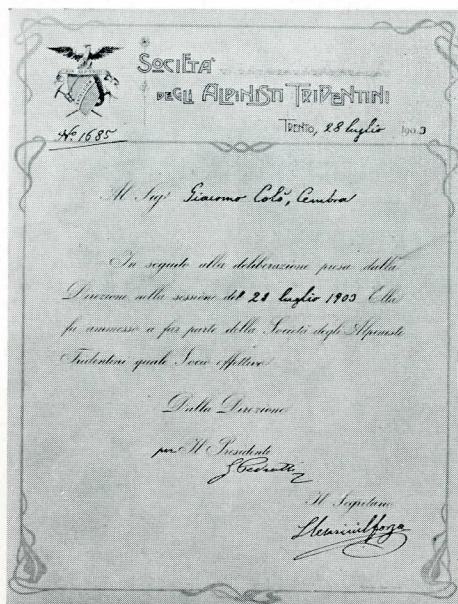 SOCIETÀ
DEGLI ALPINISTI TRIDENTINI
TRENTO, 28 luglio 1903
Nº 1685
Al Sigr Giacomo Colò, Cembra
In seguito alla deliberazione presa dalla
Direzione nella sessione del 28 luglio 1903 Ella
fu ammesso a far parte della Società degli Alpinisti
Tridentini quale Socio effettivo.
Dalla Direzione
per Il Presidente
Il Segretario